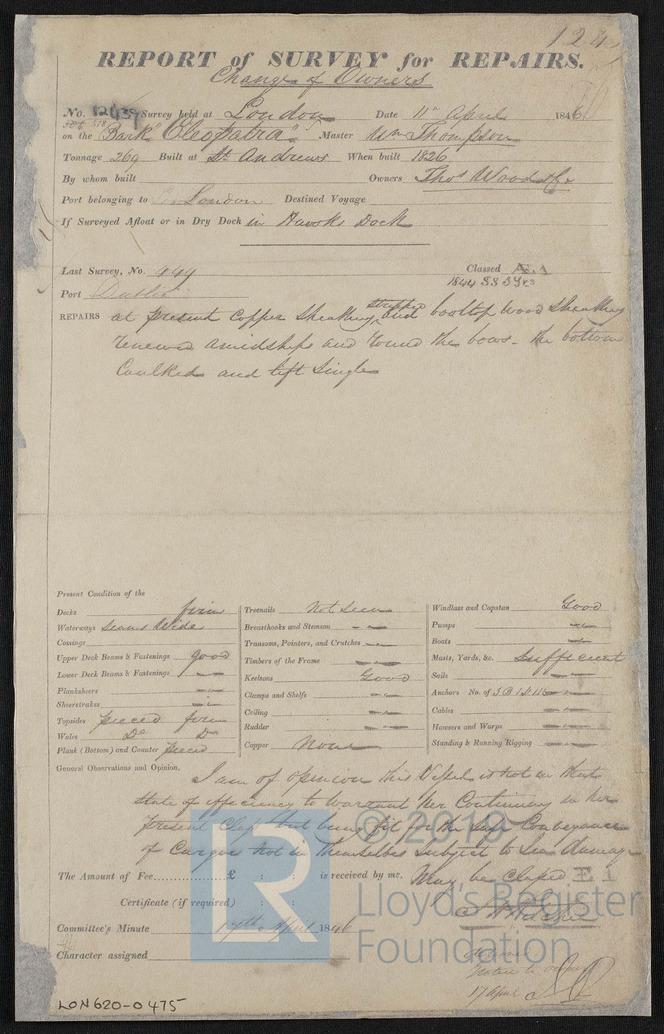 124
REPORT of SURVEY for REPAIRS.
Change of Owners
No. 12439 Survey held at London Date 11th April 1846
on the Bark "Cleopatra" Master Wm Thompson
Tonnage 269 Built at St. Andrews When built 1826
By whom built Owners Thos Wood &Co
Port belonging to London Destined Voyage
If Surveyed Afloat or in Dry Dock in Hawks Dock
Last Survey, No. 449 Classed Æ.1
1844 SS 3Yrs
Port Dublin
REPAIRS at present copper sheathing stripped and booltop wood sheathing
renewed amidships and round the bows - the bottom
Caulked and left Single
Present Condition of the
Decks firm
Waterways seams wide
Comings
Upper Deck Beams & Fastenings good
Lower Deck Beams & Fastenings —
Planksheers —
Sheerstrakes —
Topsides pieced firm
Wales Do Do
Plank (Bottom) and Counter pieced
Treenails Not Seen
Breasthooks and Stemson —
Transoms, Pointers, and Crutches —
Timbers of the Frame —
Keelsons Good
Clamps and Shelfs —
Ceiling —
Rudder —
Copper None
Windlass and Capstan Good
Pumps —
Boats —
Masts, Yards, &c. Sufficient
Sails —
Anchors No. of 3 B 1 S 1 K —
Cables —
Hawsers and Warps —
Standing & Running Rigging —
General Observations and Opinion, I am of opinion this Vessel is not in that
state of efficiency to warrant her Continuing in her
present Class but being fit for the safe Conveyance
of Cargoes not in themselves Subject to Sea damage
may be Classed E 1
The Amount of Fee............£ : : is received by me.
Certificate (if required) : :
Committee's Minute 17th April 1846
Character assigned
17 April
LON620-0475
LR
© 2019
Lloyd's Register
Foundation